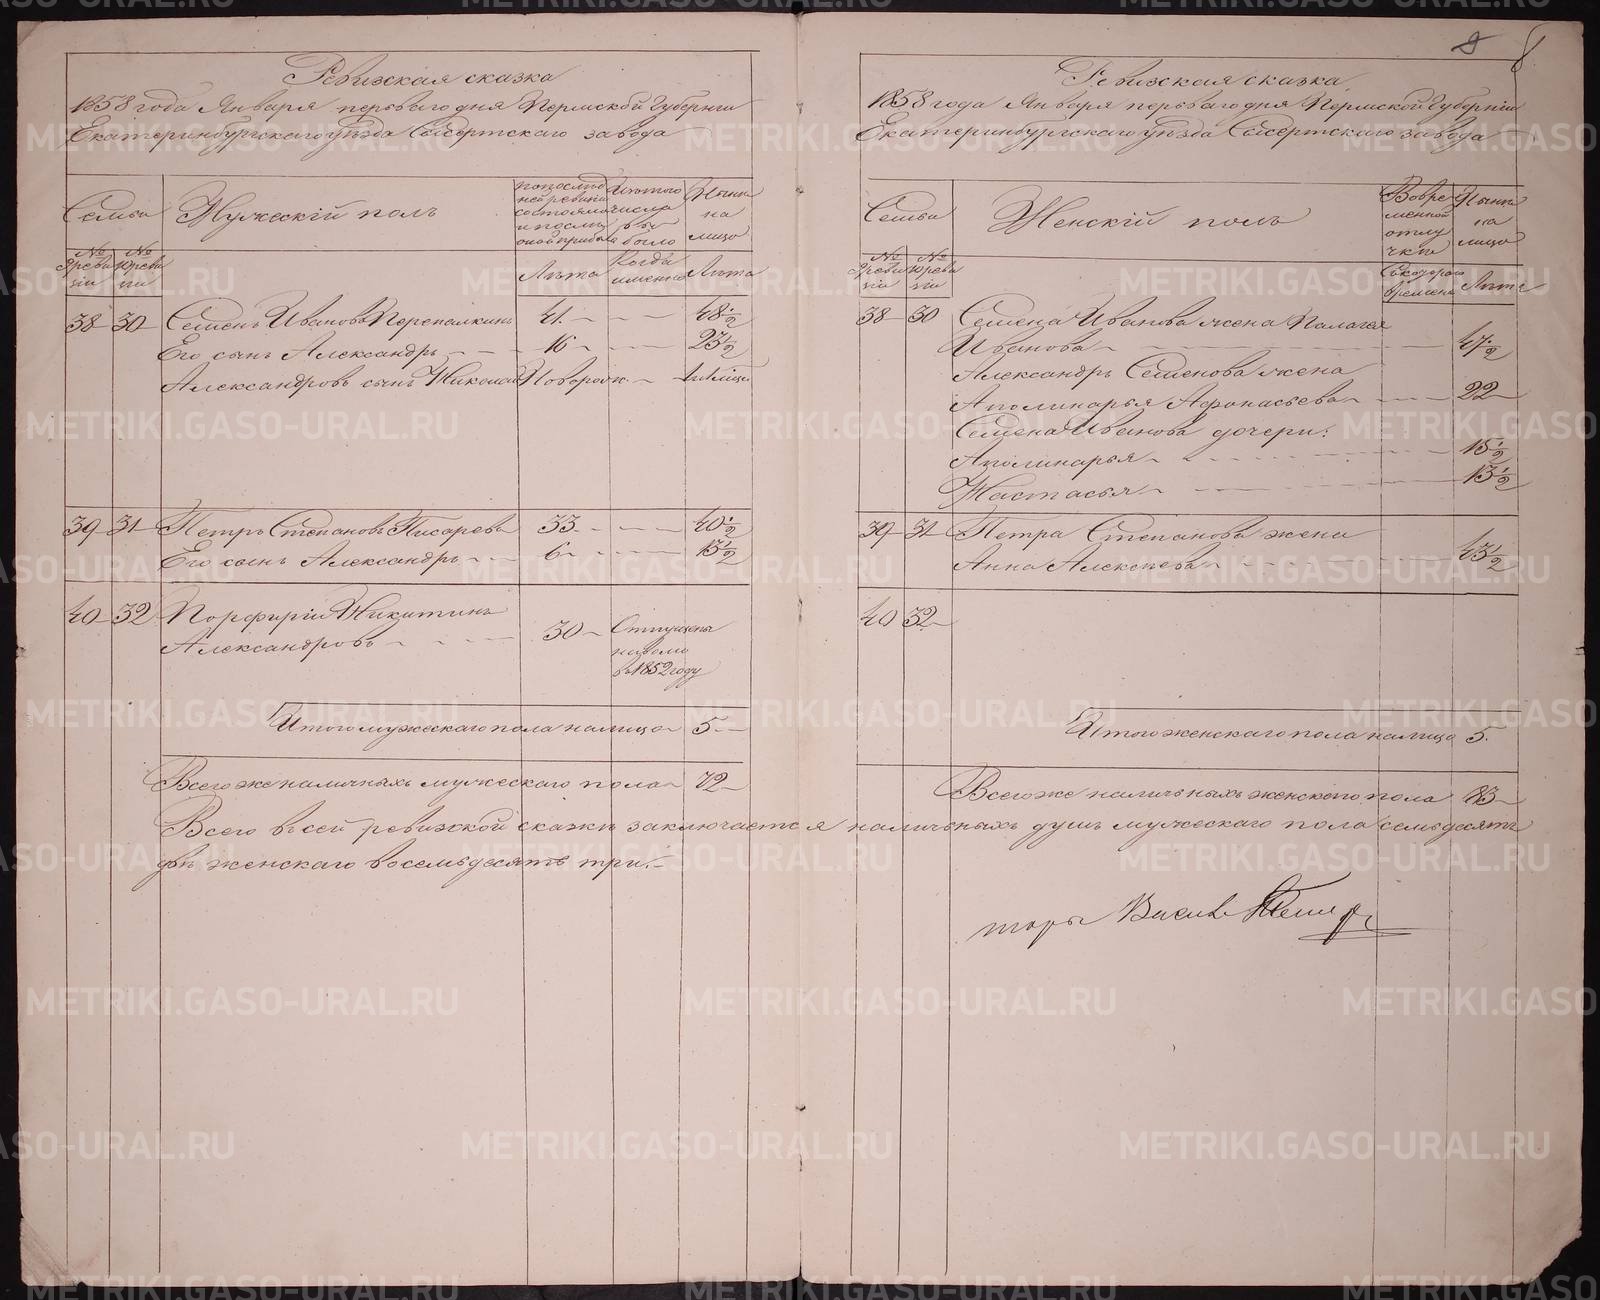 8 8
Ревизская сказка
1858 года Января перваго дня Пермской Губерніи
Екатеринбургскаго уѣзда Сысертскаго завода
Семья
Мужескій полъ
по послѣд
ней ревизіи
состояло
и послѣ
оной прибыло
Изъ того
числа
выбыло
Нынѣ
на
лицо
№ 9 ревизіи
№ 10 ревизіи
Лѣта
Когда
именно
Лѣта
38 30 Семенъ Ивановъ Перепалкинъ 41 48 1/2
Его сынъ Александръ 16 23 1/2
Александровъ сынъ Николай Новорож.
39 31 Петръ Степановъ Писаревъ 33 40 1/2
Его сынъ Александръ 6 13 1/2
40 32 Порфирій Никитинъ
Александровъ 30 Отпущенъ
на волю
въ 1852 году
Итого мужескаго пола на лицо 5
Всего же наличныхъ мужескаго пола 72
Ревизская сказка
1858 года Января перваго дня Пермской Губерніи
Екатеринбургскаго уѣзда Сысертскаго завода
Семья
Женскій полъ
Во вре
менной
отлу
чкѣ
Нынѣ
на
лицо
№ 9 ревизіи
№ 10 ревизіи
Съ котораго
времени
Лѣта
38 30 Семена Иванова жена Палагея
Иванова 47 1/2
Александръ Семенова жена
Аполинарья Афонасьева 22
Семена Иванова дочери:
Аполинарья 15 1/2
Настасья 13 1/2
39 31 Петра Степанова жена
Анна Алексѣева 43 1/2
40 32
Итого женскаго пола на лицо 5.
Всего же наличныхъ женскаго пола 83
Всего въ сей ревизской сказкѣ заключается наличныхъ душъ мужескаго пола семьдесятъ
двѣ женскаго восемьдесятъ три.
METRIKI.GASO-URAL.RU